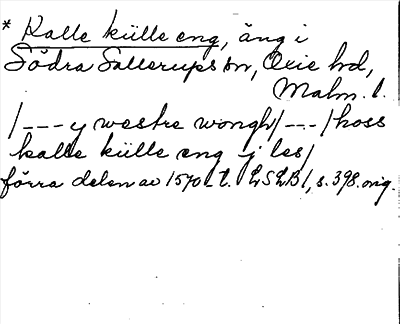 * Kalle külle eng, äng i
Södra Sallerups sn, Oxie hd,
Malm. l.
/--- y westre wongh/---/hoss
kalle külle eng j les/
förra delen av 1570-t. LSLB1, s. 398. orig.